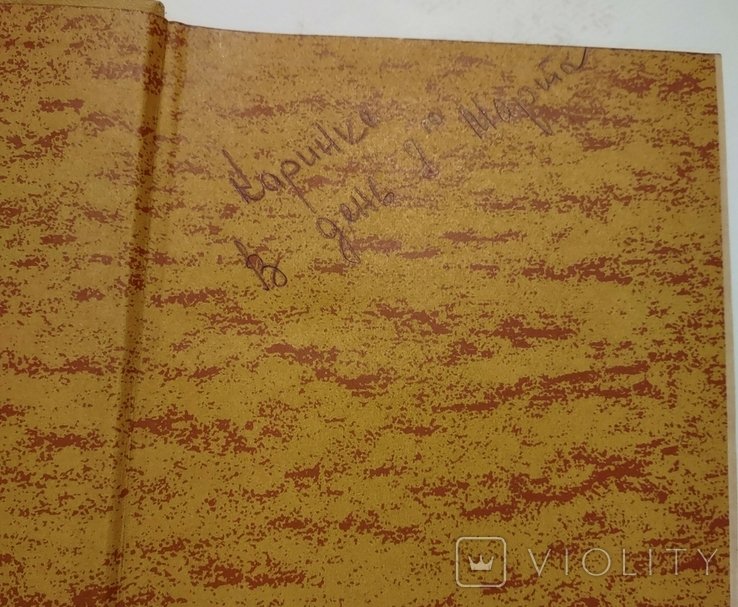 Каринке
в день 8го Марта
VIOLITY